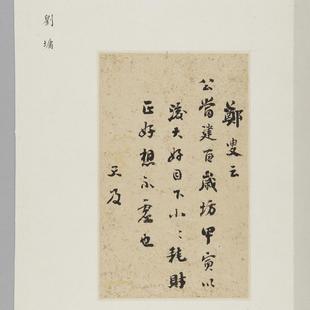 劉墉
鄭叟云
公當建百歲坊甲寅以
後大好目下小〻耗財
正好想不虛也
又及